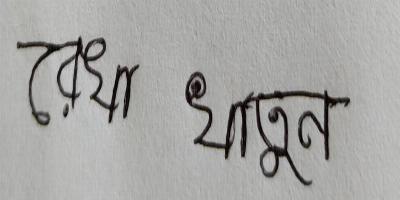 রেখা খাতুন